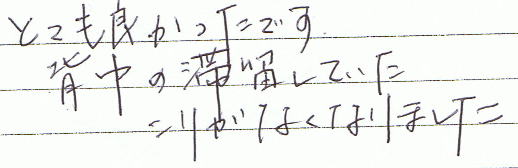 とても良かったです
背中の滞留していた
こりがなくなりました